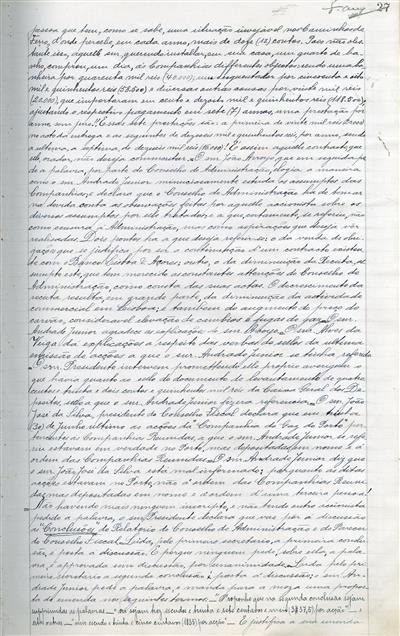 27
pessoa que tem, como se sabe, uma situação invejável nos Caminhos de
Ferro, d'onde percebe, em cada anno, mais de doze (12) contos. Pois não obs-
tante isso, aquelle sr. querendo installar, em sua casa, um quarto de ba-
nho, comprou, um dia, ás Companhias differentes objectos: sendo uma ba-
nheira por quarenta mil reis (40.000); um esquentador por cincoenta e oito
mil e quinhentos reis (58.500) e diversas outras cousas por vinte mil reis
(20.000), que importaram em cento e dezoito mil e quinhentos reis (118.500),
ajustando o respectivo pagamento em sete (7) annos, uma prestação em
cada anno! E essas sete prestações são: a primeira de vinte mil reis
no acto da entrega e as seguintes de dezeseis mil e quinhentos reis, por anno, sendo
a ultima, a septima, de dezeseis mil reis (16.000)! E assim aquelle contracto, que
elle, orador, não deseja commentar. O sr. João Arroyo, que em seguida pe-
de a palavra, por parte do Conselho de Administração, elogia a maneira
como o sr. Andrade Junior minuciosamente estuda os assumptos das
Companhias, e declara que o Conselho de Administração ha de tomar
na devida conta as observações feitas por aquelle accionista sobre os
diversos assumptos por elle tratados e a que, certamente, se referiu, não
como censura á Administração, mas como aspirações que deseja ver
realisadas. Dois pontos ha a que deseja referir-se: o da venda de obri-
gações que se justifica por ser a continuação d'um contracto existente
com o Banco Lisboa & Açores; outro, o da diminuição da Receita, as-
sumpto este, que tem merecido as constantes attenções do Conselho de
Administração, como consta das suas actas. O decrescimento da
receita resulta, em grande parte, da diminuição da actividade
commercial em Lisboa; e tambem do augmento de preço do
carvão, consideravel elevação de cambios e fugas de gaz. O sr.
Andrade Junior agradece as explicações do sr. Arroyo. O sr. Alves da
Veiga dá explicações a respeito das verbas do sello da ultima
emissão de acções a que o sr. Andrade Junior se tinha referido.
O sr. Presidente intervem promettendo elle proprio averiguar o
que havia quanto ao sello do documento de levantamento de quatro-
centos trinta e dois contos e quinhentos mil reis da Caixa Geral de De-
positos, sello a que o sr. Andrade Junior fizera referencia. O sr. João
José da Silva, presidente do Conselho Fiscal declara que em trinta
(30) de Junho ultimo as acções da "Companhia do Gaz do Porto" per-
tencentes ás Companhias Reunidas, a que o sr. Andrade Junior se refe-
riu estavam em verdade no Porto, mas depositadas em nome e á
ordem das Companhias Reunidas. O sr. Andrade Junior diz que
o sr. João José da Silva está mal informado; porquanto as ditas
acções estavam no Porto, não á ordem das Companhias Reuni-
das, mas depositadas em nome e á ordem d'uma terceira pessoa!
Não havendo mais ninguem inscripto, e não tendo outro accionista
pedido a palavra, o sr. Presidente declara que vae pôr á discussão
as "Conclusões" do Relatorio do Conselho de Administração e do Parecer
do Conselho Fiscal. Lida, pelo primeiro secretario, a primeira conclu-
são, é posta á discussão. E porque ninguem pede, sobre ella, a pala-
vra, é approvada sem discussão, por unanimidade. Lida pelo pri-
meiro secretario a segunda conclusão é posta á discussão; o sr. An-
drade Junior pede a palavra, e manda para a meza uma propos-
ta de emenda nos seguintes termos. "Proponho que na segunda conclusão sejam
supprimidas as palavras
E justifica a sua emenda